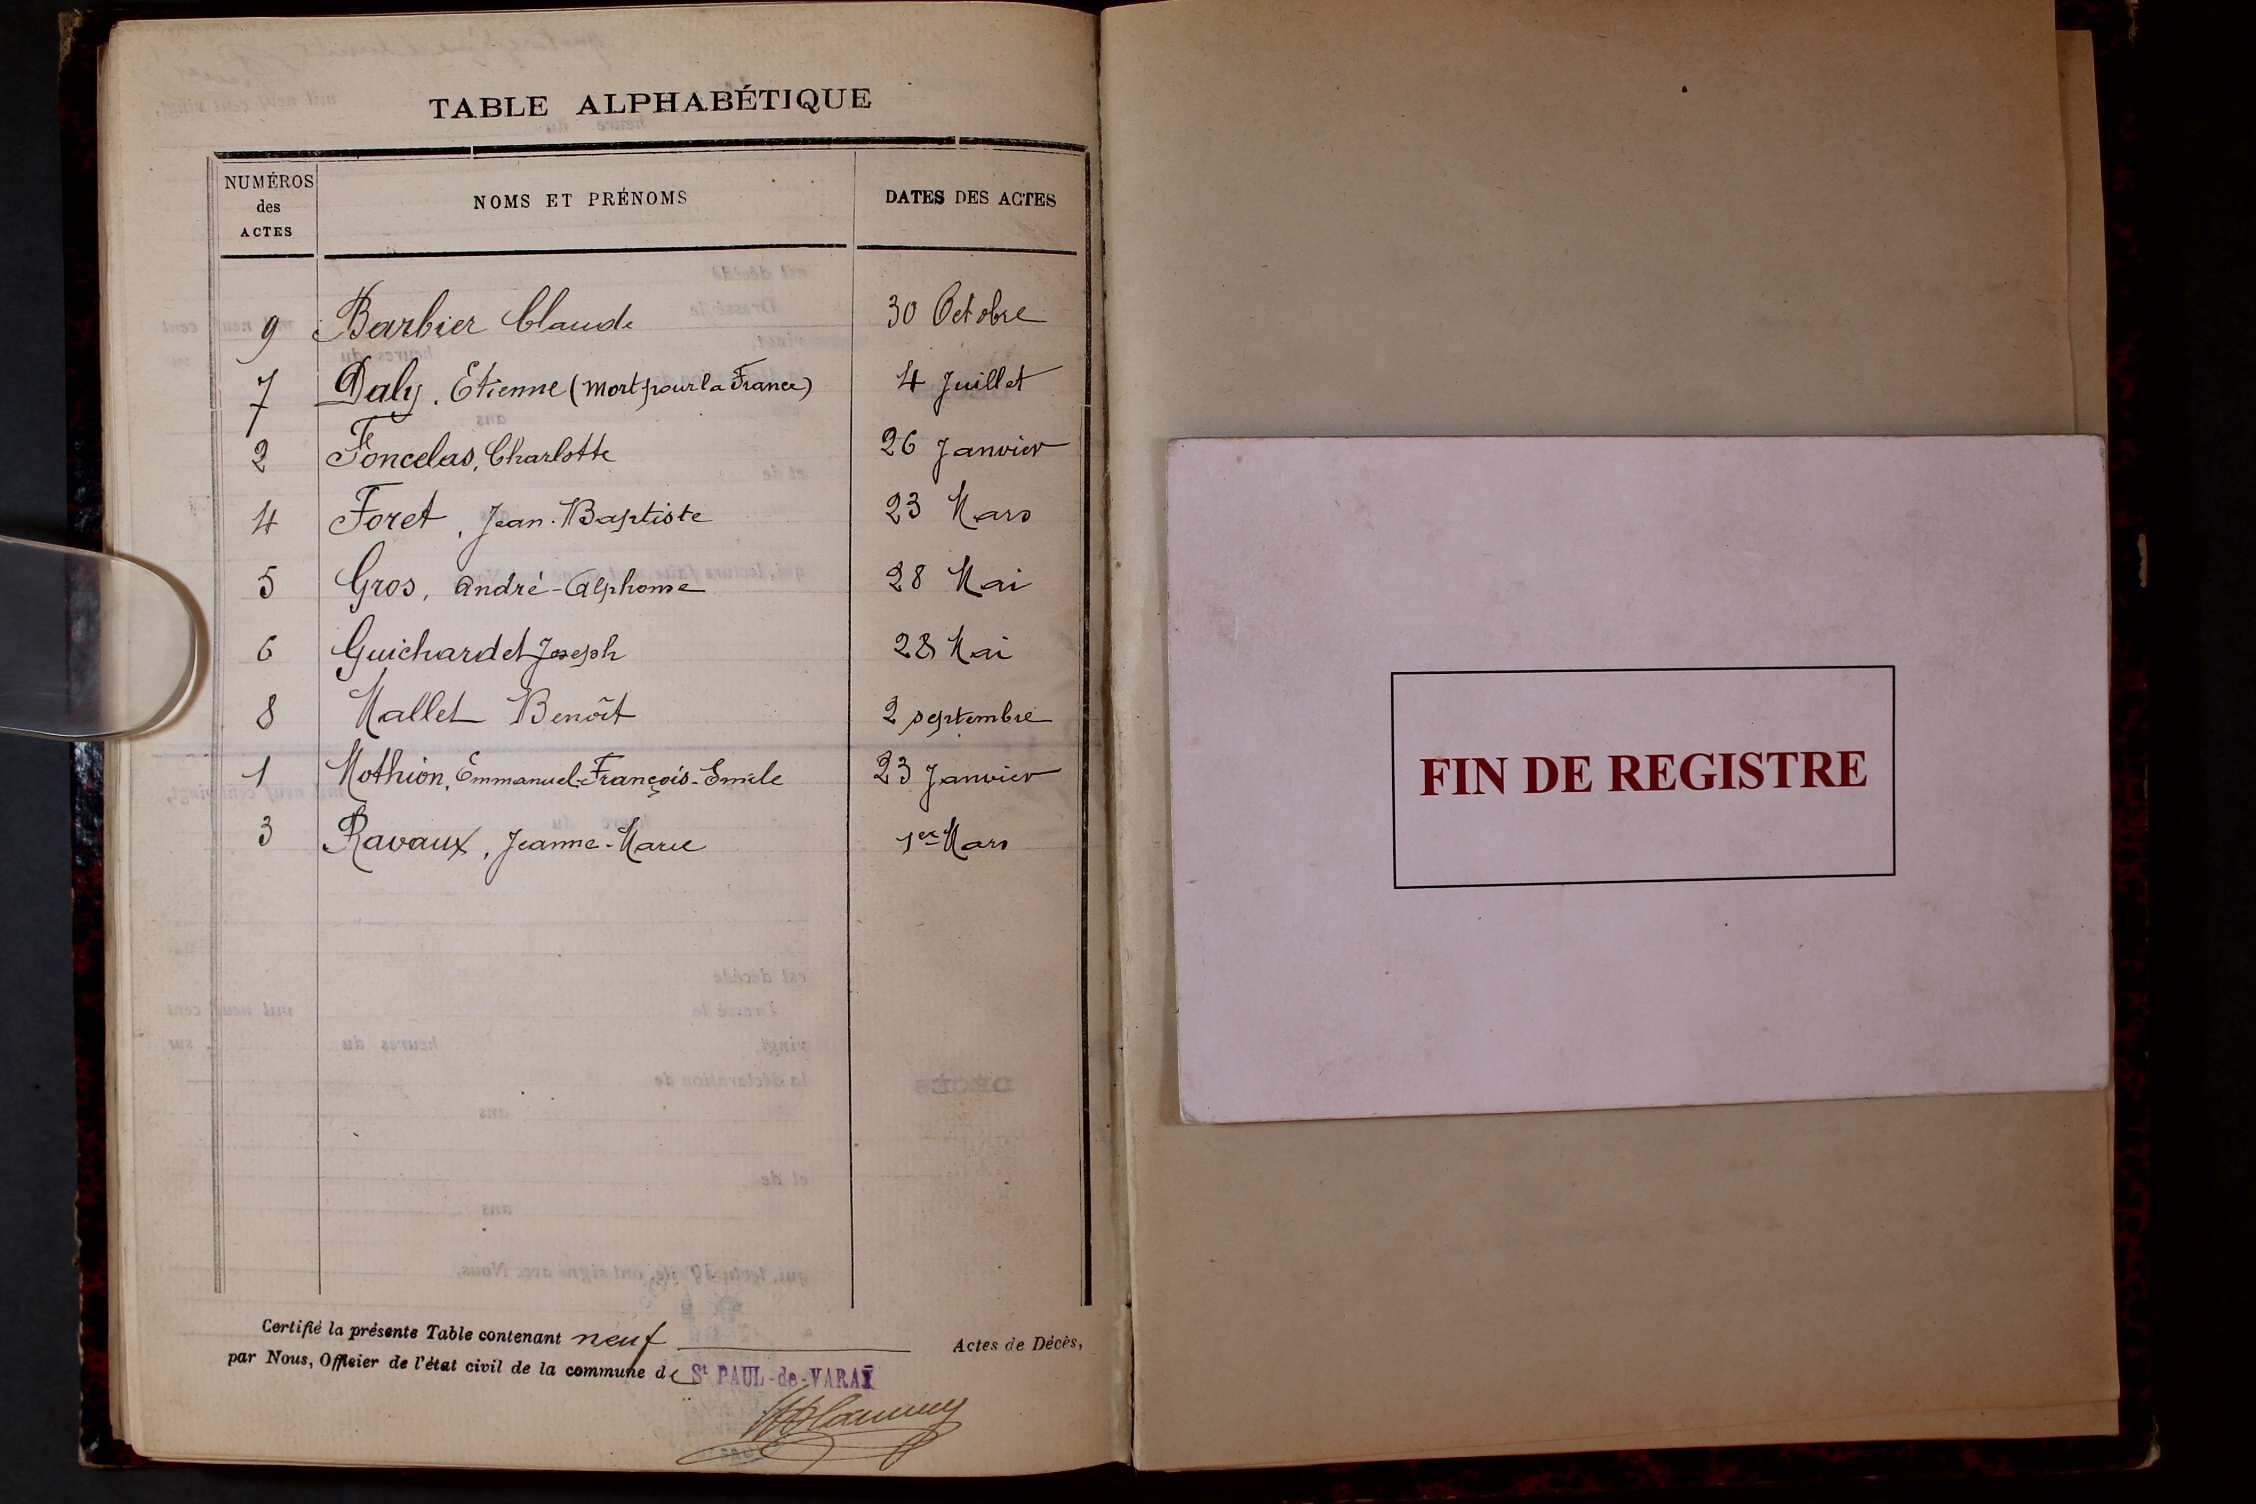 TABLE ALPHABÉTIQUE
NUMÉROS des ACTES NOMS ET PRÉNOMS DATES DES ACTES
9 Barbier Claude 30 Octobre
7 Daly. Etienne (Mort pour la France) 4 Juillet
2 Foncelas, Charlotte 26 Janvier
4 Foret, Jean-Baptiste 23 Mars
5 Gros, André-Alphonse 28 Mai
6 Guichardet Joseph 28 Mai
8 Mallet Benoît 2 septembre
1 Mothion, Emmanuel-François-Emile 23 Janvier
3 Ravaux, Jeanne-Marie 1er Mars
Certifié la présente Table contenant neuf Actes de Décès,
par Nous, Officier de l'état civil de la commune de St PAUL-de-VARAX
FIN DE REGISTRE